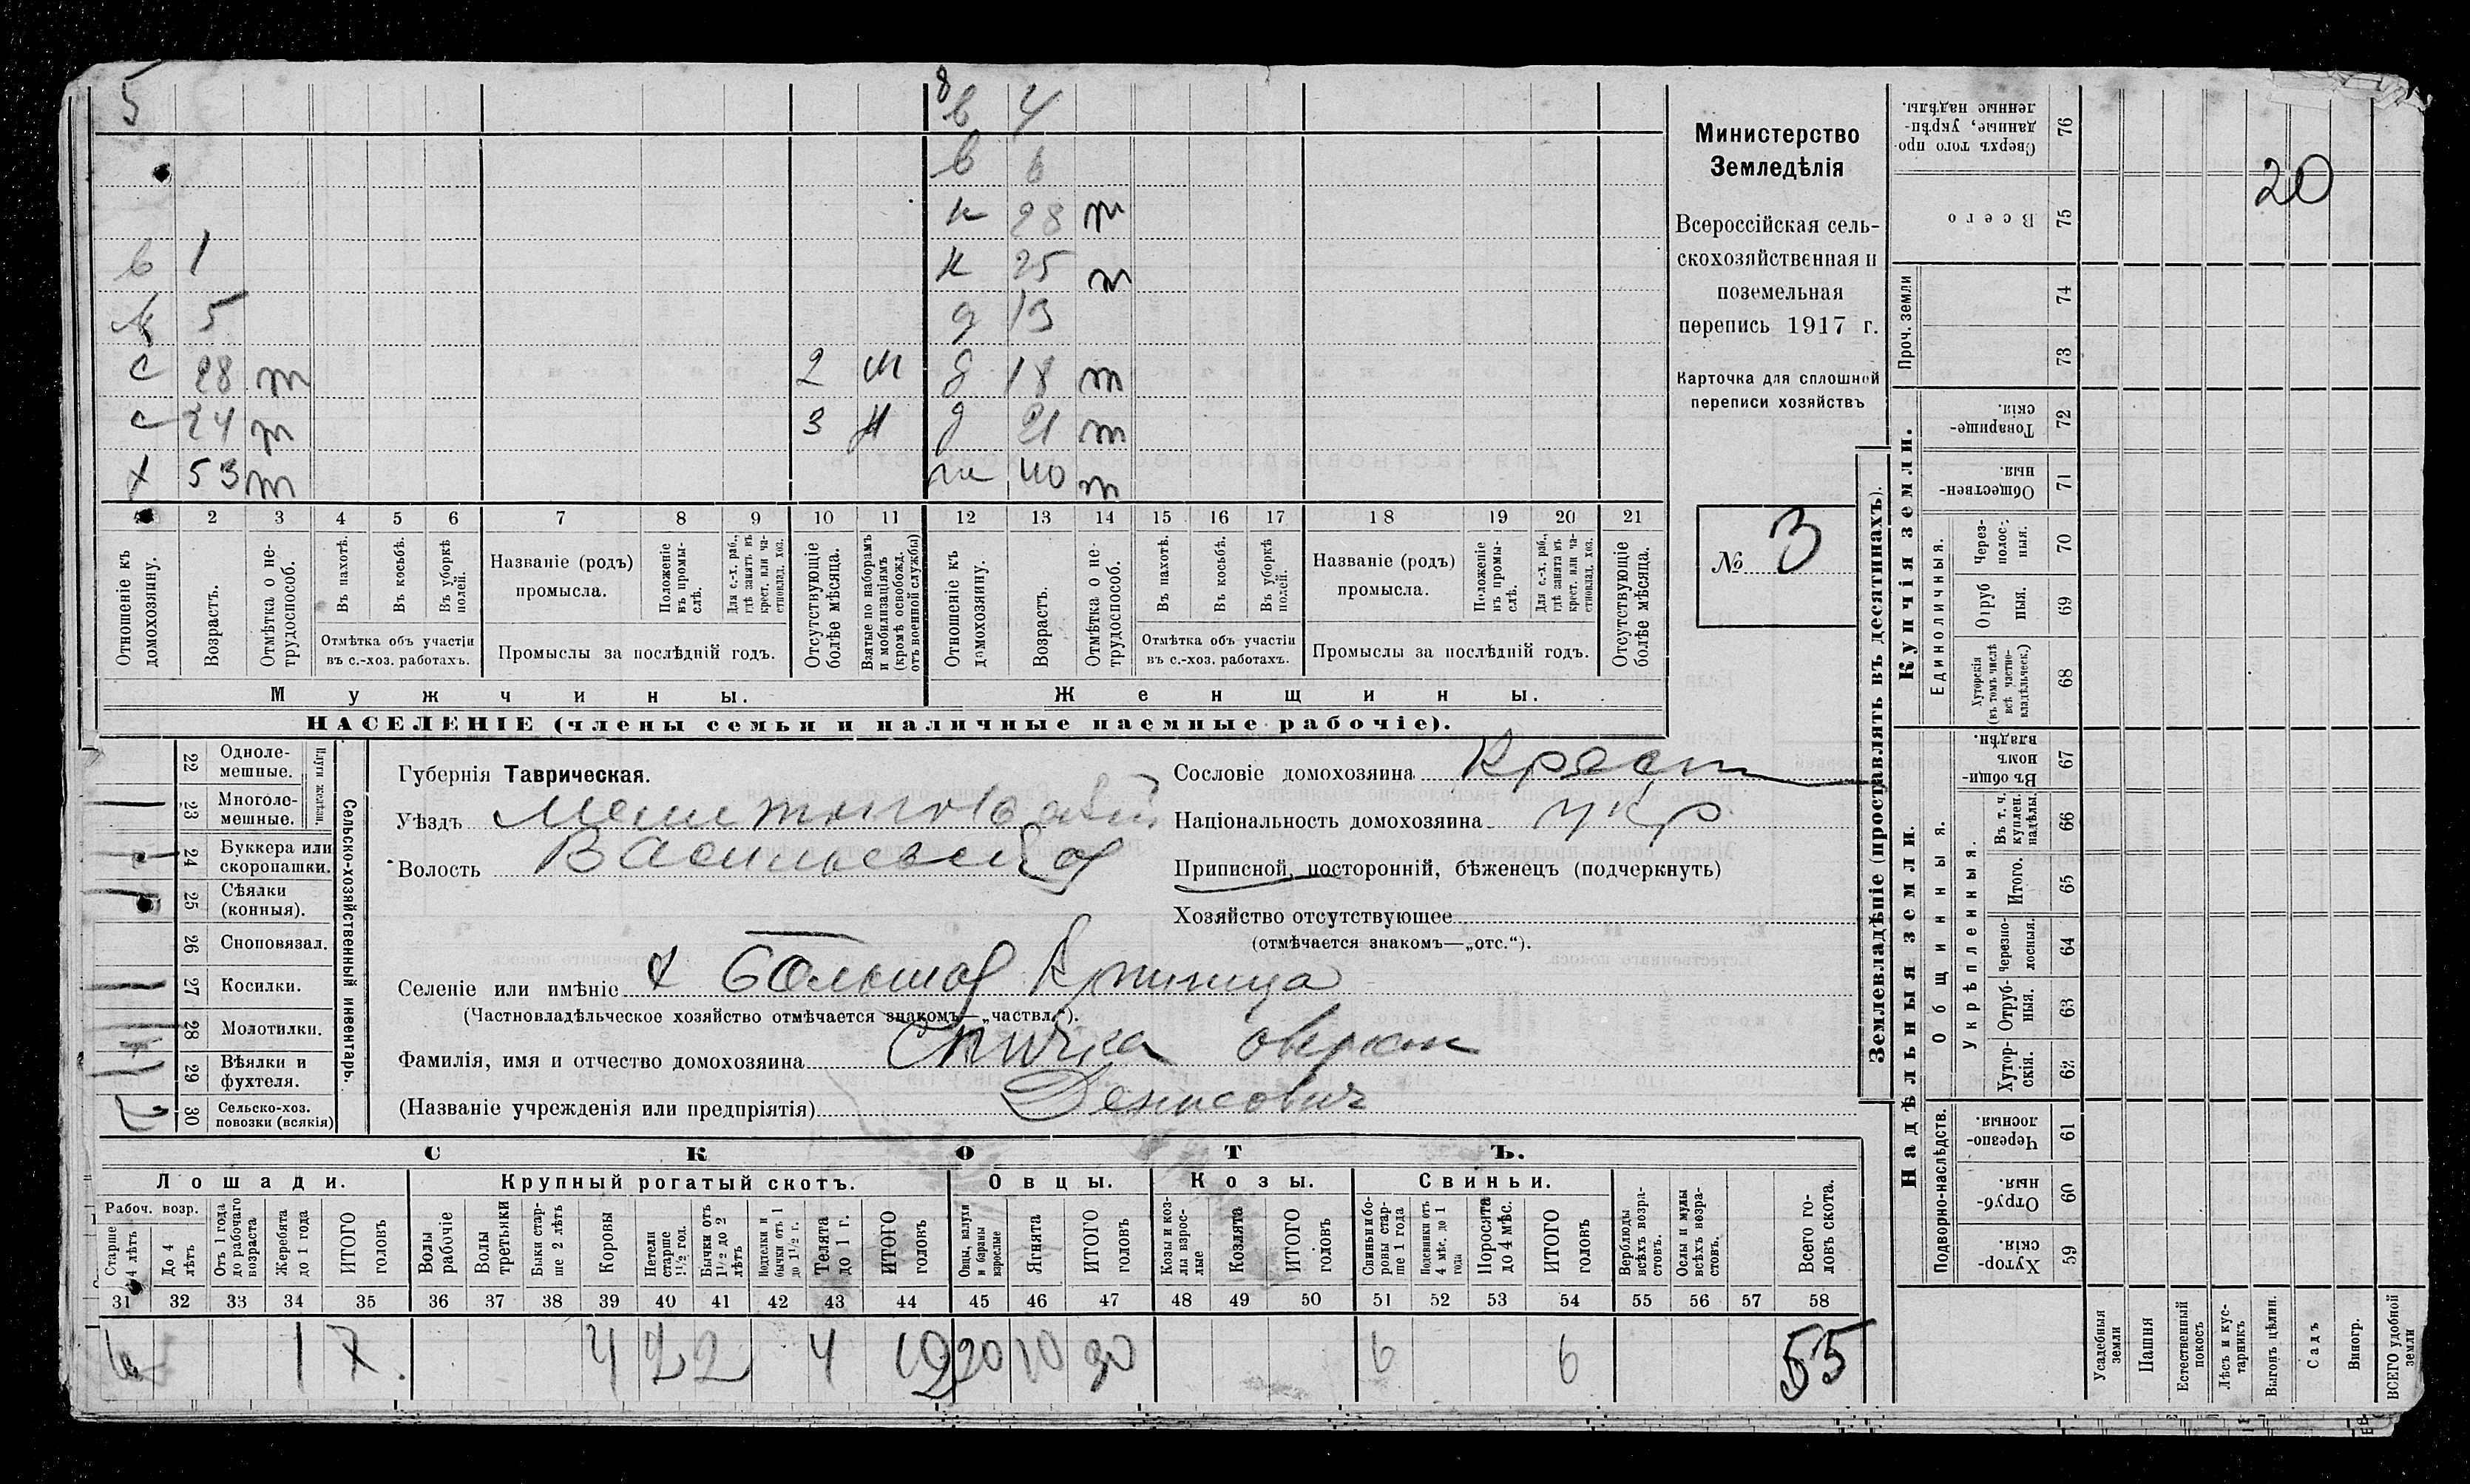 5
8
в 4
в 6
н 28 т
в 1
н 25 т
5
д 13
с 28 т 2 м
д 18 т
с 24 т 3 м
д 21 т
х 53 т
ж 40 т
1 2 3 4 5 6 7 8 9 10 11 12 13 14 15 16 17 18 19 20 21
Отношеніе къ домохозяину.
Возрастъ.
Отмѣтка о не-трудоспособ.
Въ пахотѣ.
Въ косьбѣ.
Въ уборкѣ полей.
Отмѣтка объ участіи въ с.-хоз. работахъ.
Названіе (родъ) промысла.
Положеніе въ промы-слѣ.
Для с.-х. раб., гдѣ занятъ въ крест. или ча-стновлад. хоз.
Промыслы за послѣдній годъ.
Отсутствующіе болѣе мѣсяца.
Взятые по наборамъ и мобилизаціямъ (кромѣ освобожд. отъ военной службы)
Отношеніе къ домохозяину.
Возрастъ.
Отмѣтка о не-трудоспособ.
Въ пахотѣ.
Въ косьбѣ.
Въ уборкѣ полей.
Отмѣтка объ участіи въ с.-хоз. работахъ.
Названіе (родъ) промысла.
Положеніе въ промы-слѣ.
Для с.-х. раб., гдѣ занята въ крест. или ча-стновлад. хоз.
Промыслы за послѣдній годъ.
Отсутствующіе болѣе мѣсяца.
Мужчины.
Женщины.
НАСЕЛЕНІЕ (члены семьи и наличные наемные рабочіе).
Министерство
Земледѣлія
Всероссійская сель-
скохозяйственная и
поземельная
перепись 1917 г.
Карточка для сплошной
переписи хозяйствъ
№ 3
22 Одноле-мешные.
23 Многоле-мешные.
Плуги желѣзн.
24 Буккера или скоропашки.
25 Сѣялки (конныя).
26 Сноповязал.
27 Косилки.
28 Молотилки.
29 Вѣялки и фухтеля.
30 Сельско-хоз. повозки (всякія)
Сельско-хозяйственный инвентарь.
Губернія Таврическая.
Уѣздъ Мелитопольскій
Волость Васильевская
Селеніе или имѣніе Большая Криница
(Частновладѣльческое хозяйство отмѣчается знакомъ—„частвл.“).
Фамилія, имя и отчество домохозяина Спичка Оверкій
(Названіе учрежденія или предпріятія) Денисович
Сословіе домохозяина Крест
Національность домохозяина Укр
Приписной, посторонній, бѣженецъ (подчеркнуть)
Хозяйство отсутствующее
(отмѣчается знакомъ—„отс.“).
СКОТЪ.
Лошади.
Крупный рогатый скотъ.
Овцы.
Козы.
Свиньи.
Рабоч. возр.
Старше 4 лѣтъ
До 4 лѣтъ
Отъ 1 года до рабочаго возраста
Жеребята до 1 года
ИТОГО головъ
Волы рабочіе
Волы третьяки
Быки стар-ше 2 лѣтъ
Коровы
Нетели старше 1½ год.
Бычки отъ 1½ до 2 лѣтъ
Нетелки и бычки отъ 1 до 1½ г.
Телята до 1 г.
ИТОГО головъ
Овцы, валухи и бараны взрослые
Ягнята
ИТОГО головъ
Козы и коз-лы взрос-лые
Козлята
ИТОГО головъ
Свиньи и бо-ровы стар-ше 1 года
Подсвинки отъ 4 мѣс. до 1 года
Поросята до 4 мѣс.
ИТОГО головъ
Верблюды всѣхъ возра-стовъ.
Ослы и мулы всѣхъ возра-стовъ.
Всего го-ловъ скота.
31 32 33 34 35 36 37 38 39 40 41 42 43 44 45 46 47 48 49 50 51 52 53 54 55 56 57 58
6 1 7 4 2 2 4 12 20 10 30 6 6 55
Землевладѣніе (проставлять въ десятинахъ).
Купчія земли.
Надѣльныя земли.
Сверхъ того про-данные, укрѣп-ленные надѣлы. 76
Всего 75
Проч. земли
74
73
Товарище-скія. 72
Обществен-ныя. 71
Единоличныя.
Через-полос-ныя. 70
Отруб ныя. 69
Хуторскія (въ томъ числѣ всѣ частно-владѣльческ.) 68
Въ общи-номъ владѣн. 67
Общинныя.
Укрѣпленныя.
Въ т. ч. куплен. надѣлы. 66
Итого. 65
Черезпо-лосныя. 64
Отруб-ныя. 63
Хутор-скія. 62
Подворно-наслѣдств.
Черезпо-лосныя. 61
Отруб-ныя. 60
Хутор-скія. 59
Усадебныя земли
Пашня
Естественный покосъ
Лѣсъ и кус-тарникъ
Выгонъ цѣлин.
Садъ
Виногр.
ВСЕГО удобной земли
20